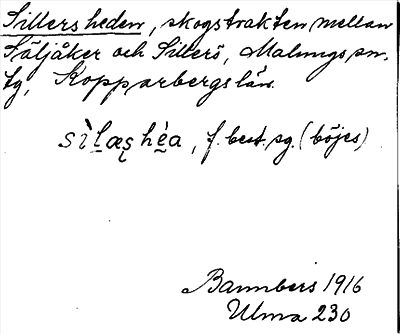 Sillersheden, skogstrakten mellan
Säljåker och Sillerö, Malungs sn.
tg, Kopparbergs län.
sìlæshèa, f. best. sg. (böjes)
Bannbers 1916
Ulma 230